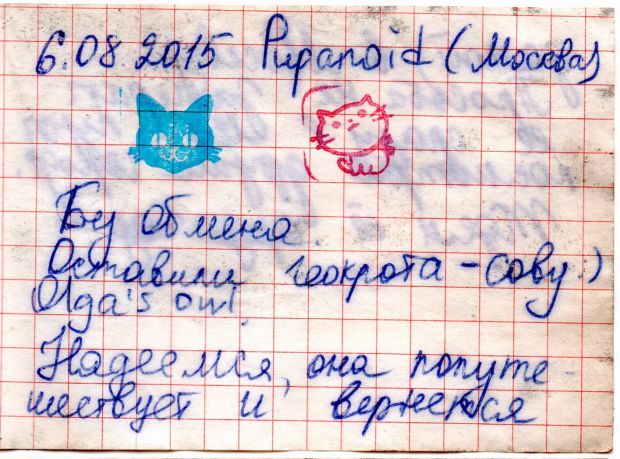 6.08.2015 Pupanoid (Москва)
Бу обмена.
Оставили геокрота - сову :)
Olga's owl.
Надеемся, она попуте-
шествует и вернется